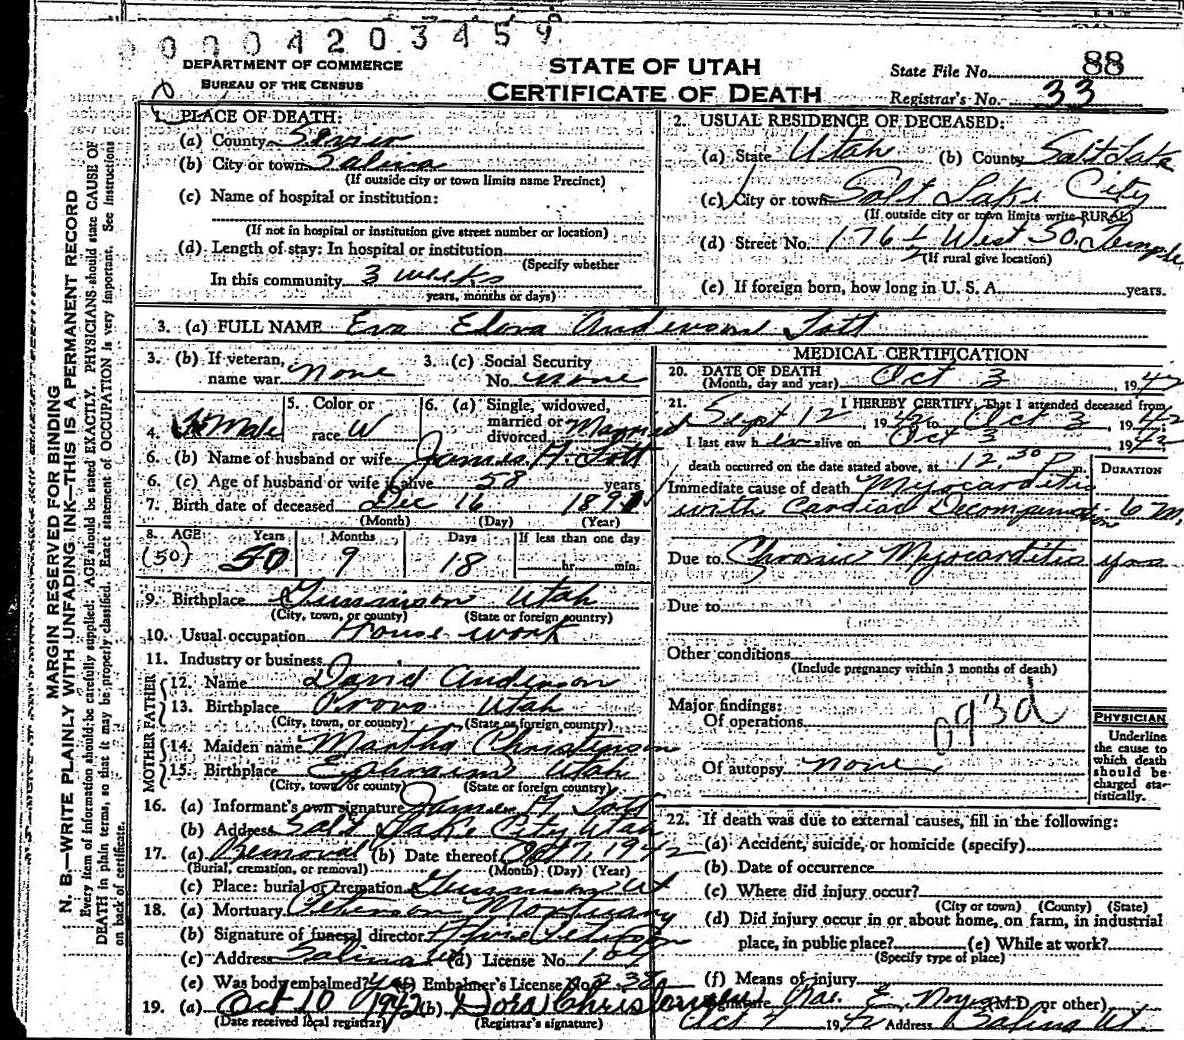 00004203459
DEPARTMENT OF COMMERCE
BUREAU OF THE CENSUS
STATE OF UTAH
CERTIFICATE OF DEATH
State File No. 88
Registrar's No. 33
MARGIN RESERVED FOR BINDING
N. B.—WRITE PLAINLY WITH UNFADING INK—THIS IS A PERMANENT RECORD
Every item of information should be carefully supplied. AGE should be stated EXACTLY. PHYSICIANS should state CAUSE OF
DEATH in plain terms, so that it may be properly classified. Exact statement of OCCUPATION is very important. See instructions
on back of certificate.
1. PLACE OF DEATH:
(a) County Sevier
(b) City or town Salina
(If outside city or town limits name Precinct)
(c) Name of hospital or institution:
(If not in hospital or institution give street number or location)
(d) Length of stay: In hospital or institution
(Specify whether
In this community 3 weeks
years, months or days)
2. USUAL RESIDENCE OF DECEASED:
(a) State Utah (b) County Salt Lake
(c) City or town Salt Lake City
(If outside city or town limits write RURAL)
(d) Street No. 176 1/2 West So. Temple
(If rural give location)
(e) If foreign born, how long in U. S. A. years.
3. (a) FULL NAME Eva Anderson Tott
3. (b) If veteran, name war none
3. (c) Social Security No. none
4. Female
5. Color or race W
6. (a) Single, widowed, married or divorced Married
6. (b) Name of husband or wife James H. Tott
6. (c) Age of husband or wife if alive 58 years
7. Birth date of deceased Dec 16 1891
(Month) (Day) (Year)
8. AGE Years Months Days If less than one day
(50) 50 9 18 hr. min.
9. Birthplace Gunnison Utah
(City, town, or county) (State or foreign country)
10. Usual occupation House work
11. Industry or business
FATHER
12. Name David Anderson
13. Birthplace Provo Utah
(City, town, or county) (State or foreign country)
MOTHER
14. Maiden name Martha Christenson
15. Birthplace Ephraim Utah
(City, town, or county) (State or foreign country)
16. (a) Informant's own signature James H Tott
(b) Address Salt Lake City Utah
17. (a) Removal (b) Date thereof Oct 7 1942
(Burial, cremation, or removal) (Month) (Day) (Year)
(c) Place: burial or cremation Gunnison Ut
18. (a) Mortuary Peterson Mortuary
(b) Signature of funeral director
(c) Address Salina Ut (d) License No.
(e) Was body embalmed? yes (f) Embalmer's License No.
19. (a) Oct 10 1942 (b) Dora Christensen
(Date received local registrar) (Registrar's signature)
MEDICAL CERTIFICATION
20. DATE OF DEATH
(Month, day and year) Oct 3, 1942
21. I HEREBY CERTIFY, That I attended deceased from
Sept 12, 1942 to Oct 3, 1942
I last saw her alive on Oct 3 1942
death occurred on the date stated above, at 12:30 P m.
DURATION
Immediate cause of death Myocarditis
with Cardiac Decompensation 6 m.
Due to Chronic Myocarditis yrs
Due to
Other conditions
(Include pregnancy within 3 months of death)
Major findings:
Of operations
093d
Of autopsy none
PHYSICIAN
Underline
the cause to
which death
should be
charged sta-
tistically.
22. If death was due to external causes, fill in the following:
(a) Accident, suicide, or homicide (specify)
(b) Date of occurrence
(c) Where did injury occur?
(City or town) (County) (State)
(d) Did injury occur in or about home, on farm, in industrial
place, in public place? (e) While at work?
(Specify type of place)
(f) Means of injury
Signature Rae E. Noyes (M.D. or other)
Oct 7 1942 Address Salina Ut.